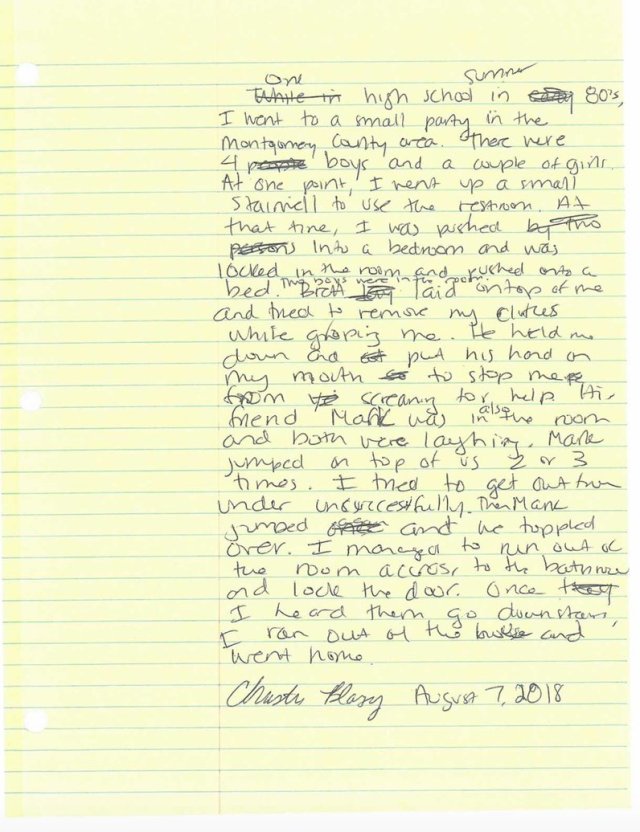 One summer
While in high school in early 80's,
I went to a small party in the
Montgomery County area. There were
4 people boys and a couple of girls.
At one point, I went up a small
stairwell to use the restroom. At
that time, I was pushed by two
persons into a bedroom and was
locked in the room and pushed onto a
Two boys were in the room.
bed. Brett laid on top of me
and tried to remove my clothes
while groping me. He held me
down and put his hand on
my mouth to stop me
from screaming for help. His
also
friend Mark was in the room
and both were laughing. Mark
jumped on top of us 2 or 3
times. I tried to get out from
under unsuccessfully. Then Mark
jumped once and we toppled
over. I managed to run out of
the room across to the bathroom
and lock the door. Once they
I heard them go downstairs,
I ran out of the house and
went home.
Christine Blasey August 7, 2018